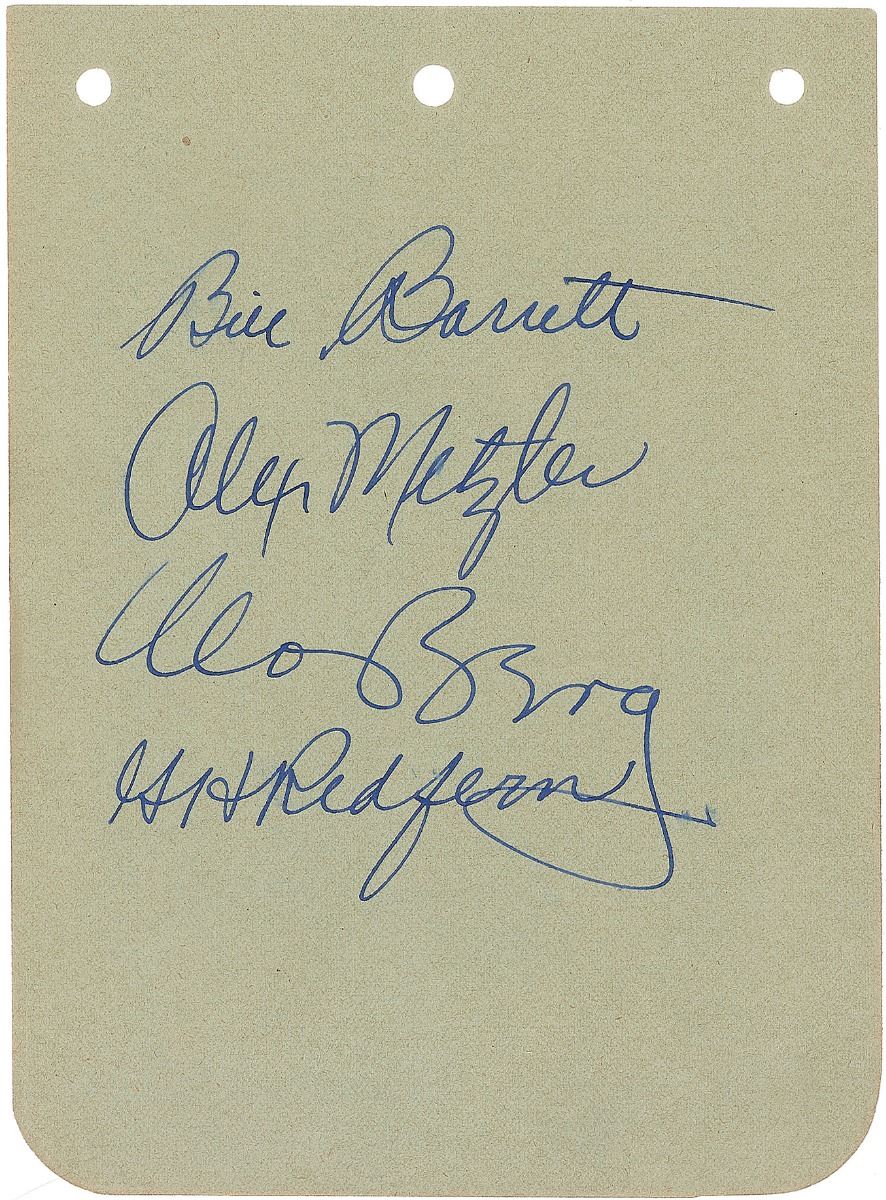 Bill Barrett
Alex Metzler
Moe Berg
G H Redfern